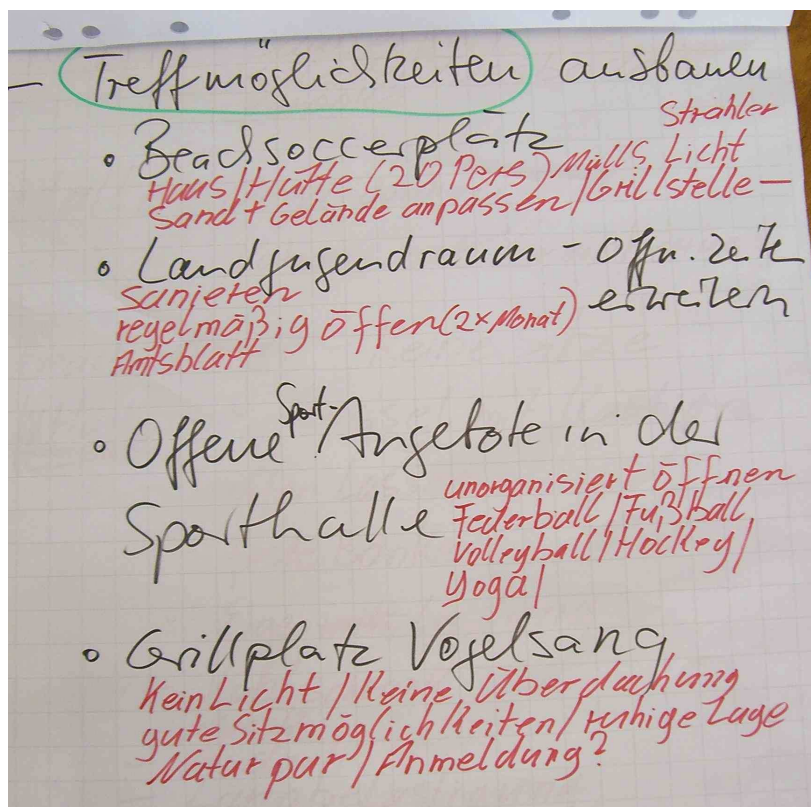 - Treffmöglichkeiten ausbauen
Strahler
• Beachsoccerplatz
Haus/Hütte (20 Pers) Mülls, Licht
Sand + Gelände anpassen/Grillstelle -
• Landjugendraum - Öffn. zeiten
erweitern
sanieren
regelmäßig öffen (2x Monat)
Amtsblatt
• Offene Sport- Angebote in der
Sporthalle
unorganisiert öffnen
Federball/Fußball,
Volleyball/Hockey/
Yoga/
• Grillplatz Vogelsang
Kein Licht/Keine Überdachung
gute Sitzmöglichkeiten/ruhige Lage
Natur pur/Anmeldung?